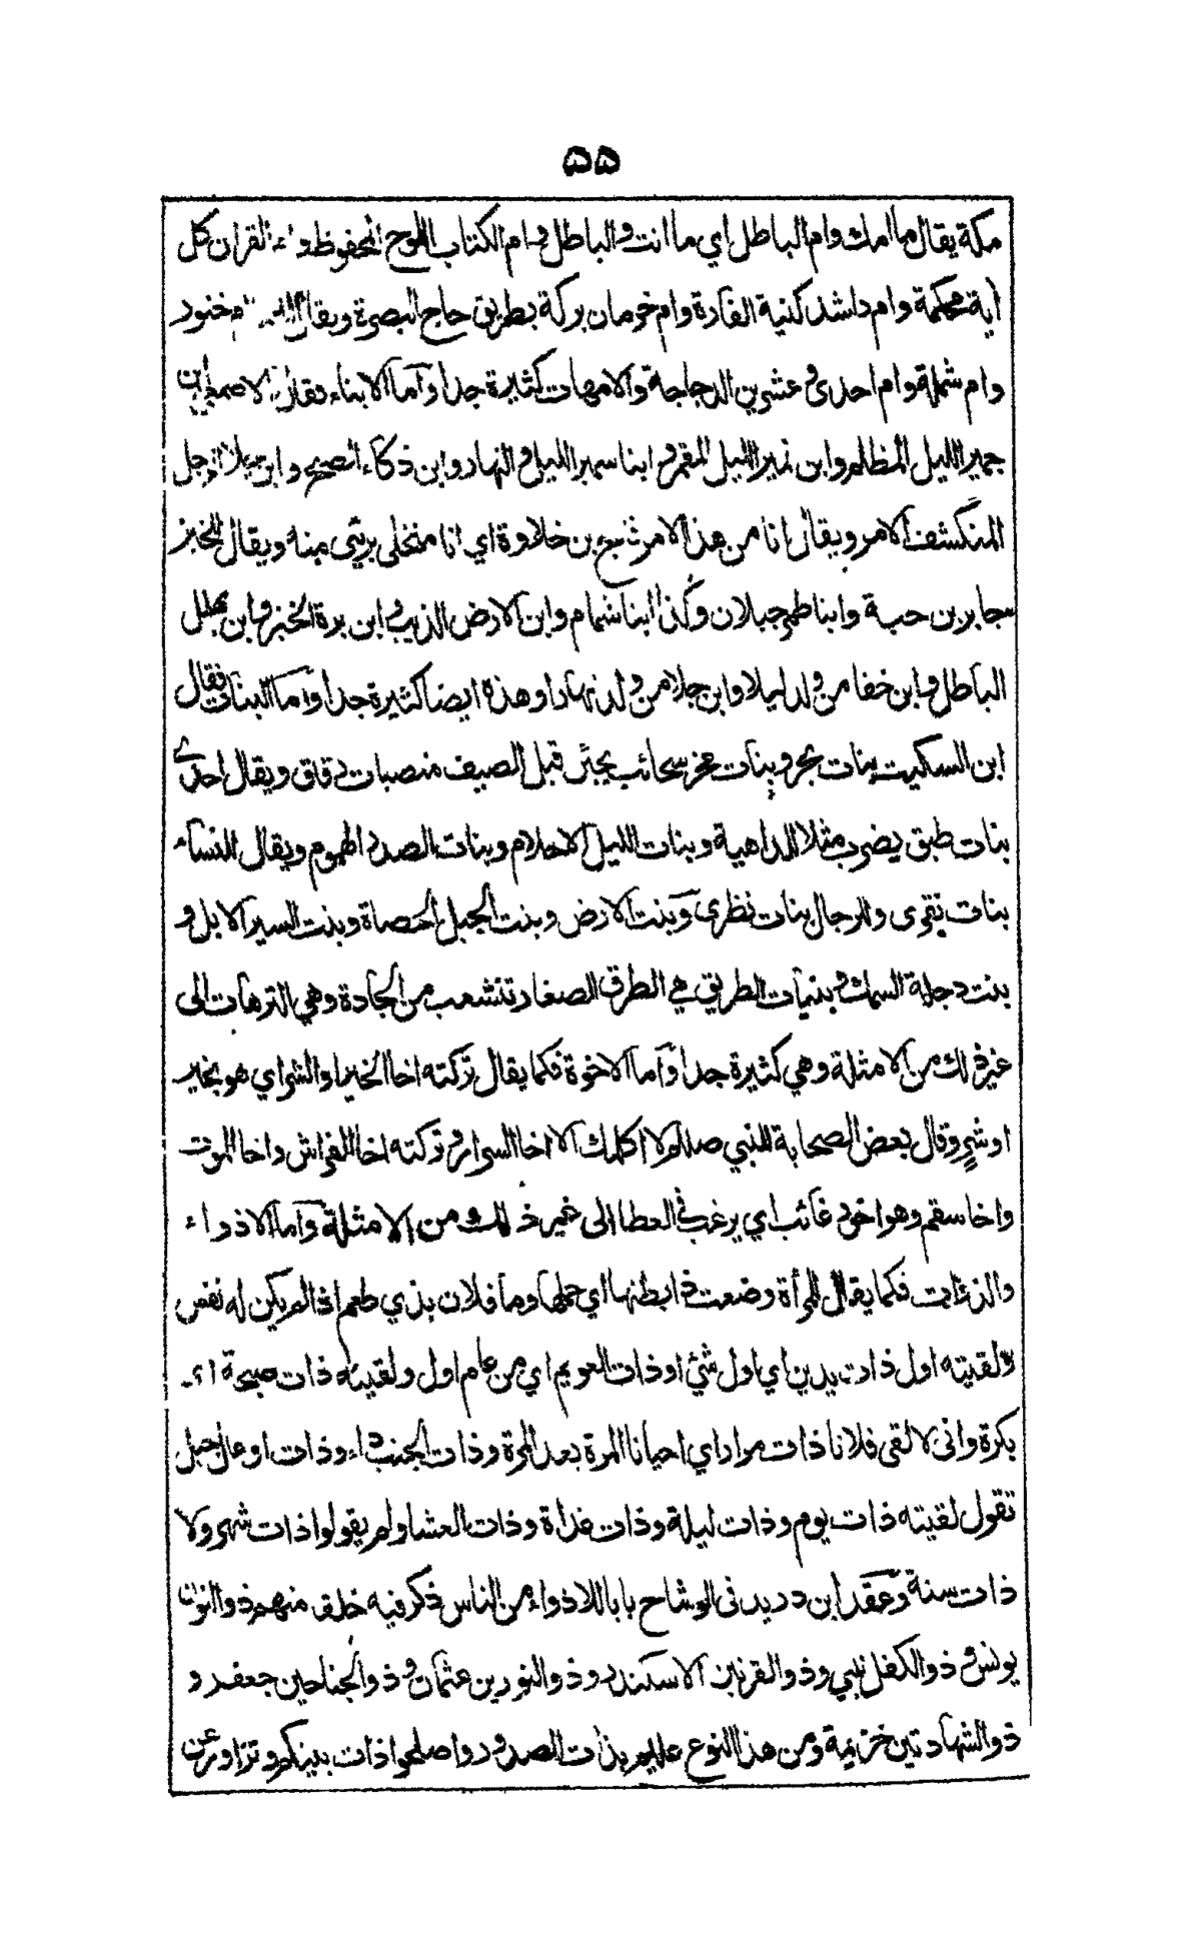 ۵۵
مكة يقال ما امك وام الباطل اي ما انت والباطل وام الكتاب اللوح المحفوظ و القران كل
آية محكمة وام راشد كنية الفارة وام خرمان بركة بطريق حاج البصرة ويقال خنور
وام شملة وام احدى وعشرين الدجاجة والامهات كثيرة جدا وآما الابناء فقال الاصمعي ابن
جمير الليل المظلم وابن نمير الليل المقمر وابنا سمير الليل والنهار وابن ذكاء الصبح وابن جلا الرجل
المنكشف الامر ويقال انا من هذا الامر بن خلاوة اي انا متخلى برئ منه ويقال للخبز
جابر بن حبة وابنا طمر جبلان وكذا ابنا شمام وابن الارض الذيب وابن برة الخبز وابن بهلل
الباطل وابن خفا من ولد ليلا وابن جلا من ولد نهارا وهذه ايضا كثيرة جدا وآما البنات فقال
ابن السكيت بنات بحر وبنات مخر سحائب يجئن قبل الصيف منصبات دقاق ويقال احدى
بنات طبق يضرب مثلا للداهية وبنات الليل الاحلام وبنات الصدر الهموم ويقال للنساء
بنات نقرى والرجال بنات نظرى وبنت الارض وبنت الجبل الحصاة وبنت السير الابل و
بنت دجلة السمك وبنيات الطريق هي الطرق الصغار تتشعب من الجادة وهي الترهات الى
غير ذلك من الامثلة وهي كثيرة جدا وآما الاخوة فكما يقال تركته اخا الخير او الشر اي هو بخير
او شر وقال بعض الصحابة للنبي صللم لا اكلمك الا اخا السرار وتركته اخا الفراش واخا الموت
واخا سقم وهو اخو رغائب اي يرغب في العطا الى غير ذلك من الامثلة وآما الاذواء
والذوات فكما يقال للمرأة وضعت ذا بطنها اي حملها وما فلان بذي طعم اذا لم يكن له نفس
ولقيته اول ذات يدين اي اول شئ او ذات العويم اي من عام اول ولقيته ذات صبحة اي
بكرة وانى لا لقى فلانا ذات مرار اي احيانا المرة بعد المرة وذات الجنب داء وذات اوعال جبل
تقول لقيته ذات يوم وذات ليلة وذات غداة وذات العشا ولم يقولوا ذات شهر ولا
ذات سنة وعقد ابن دريد فى الوشاح بابا للاذواء من الناس ذكر فيه خلق منهم ذو النون
يونس وذو الكفل نبي وذو القرنين الاسكندر وذو النورين عثمان وذو الجناحين جعفر و
ذو الشهادتين خزيمة ومن هذا النوع عليم بذات الصدور واصلحوا ذات بينكم وتزاور عن